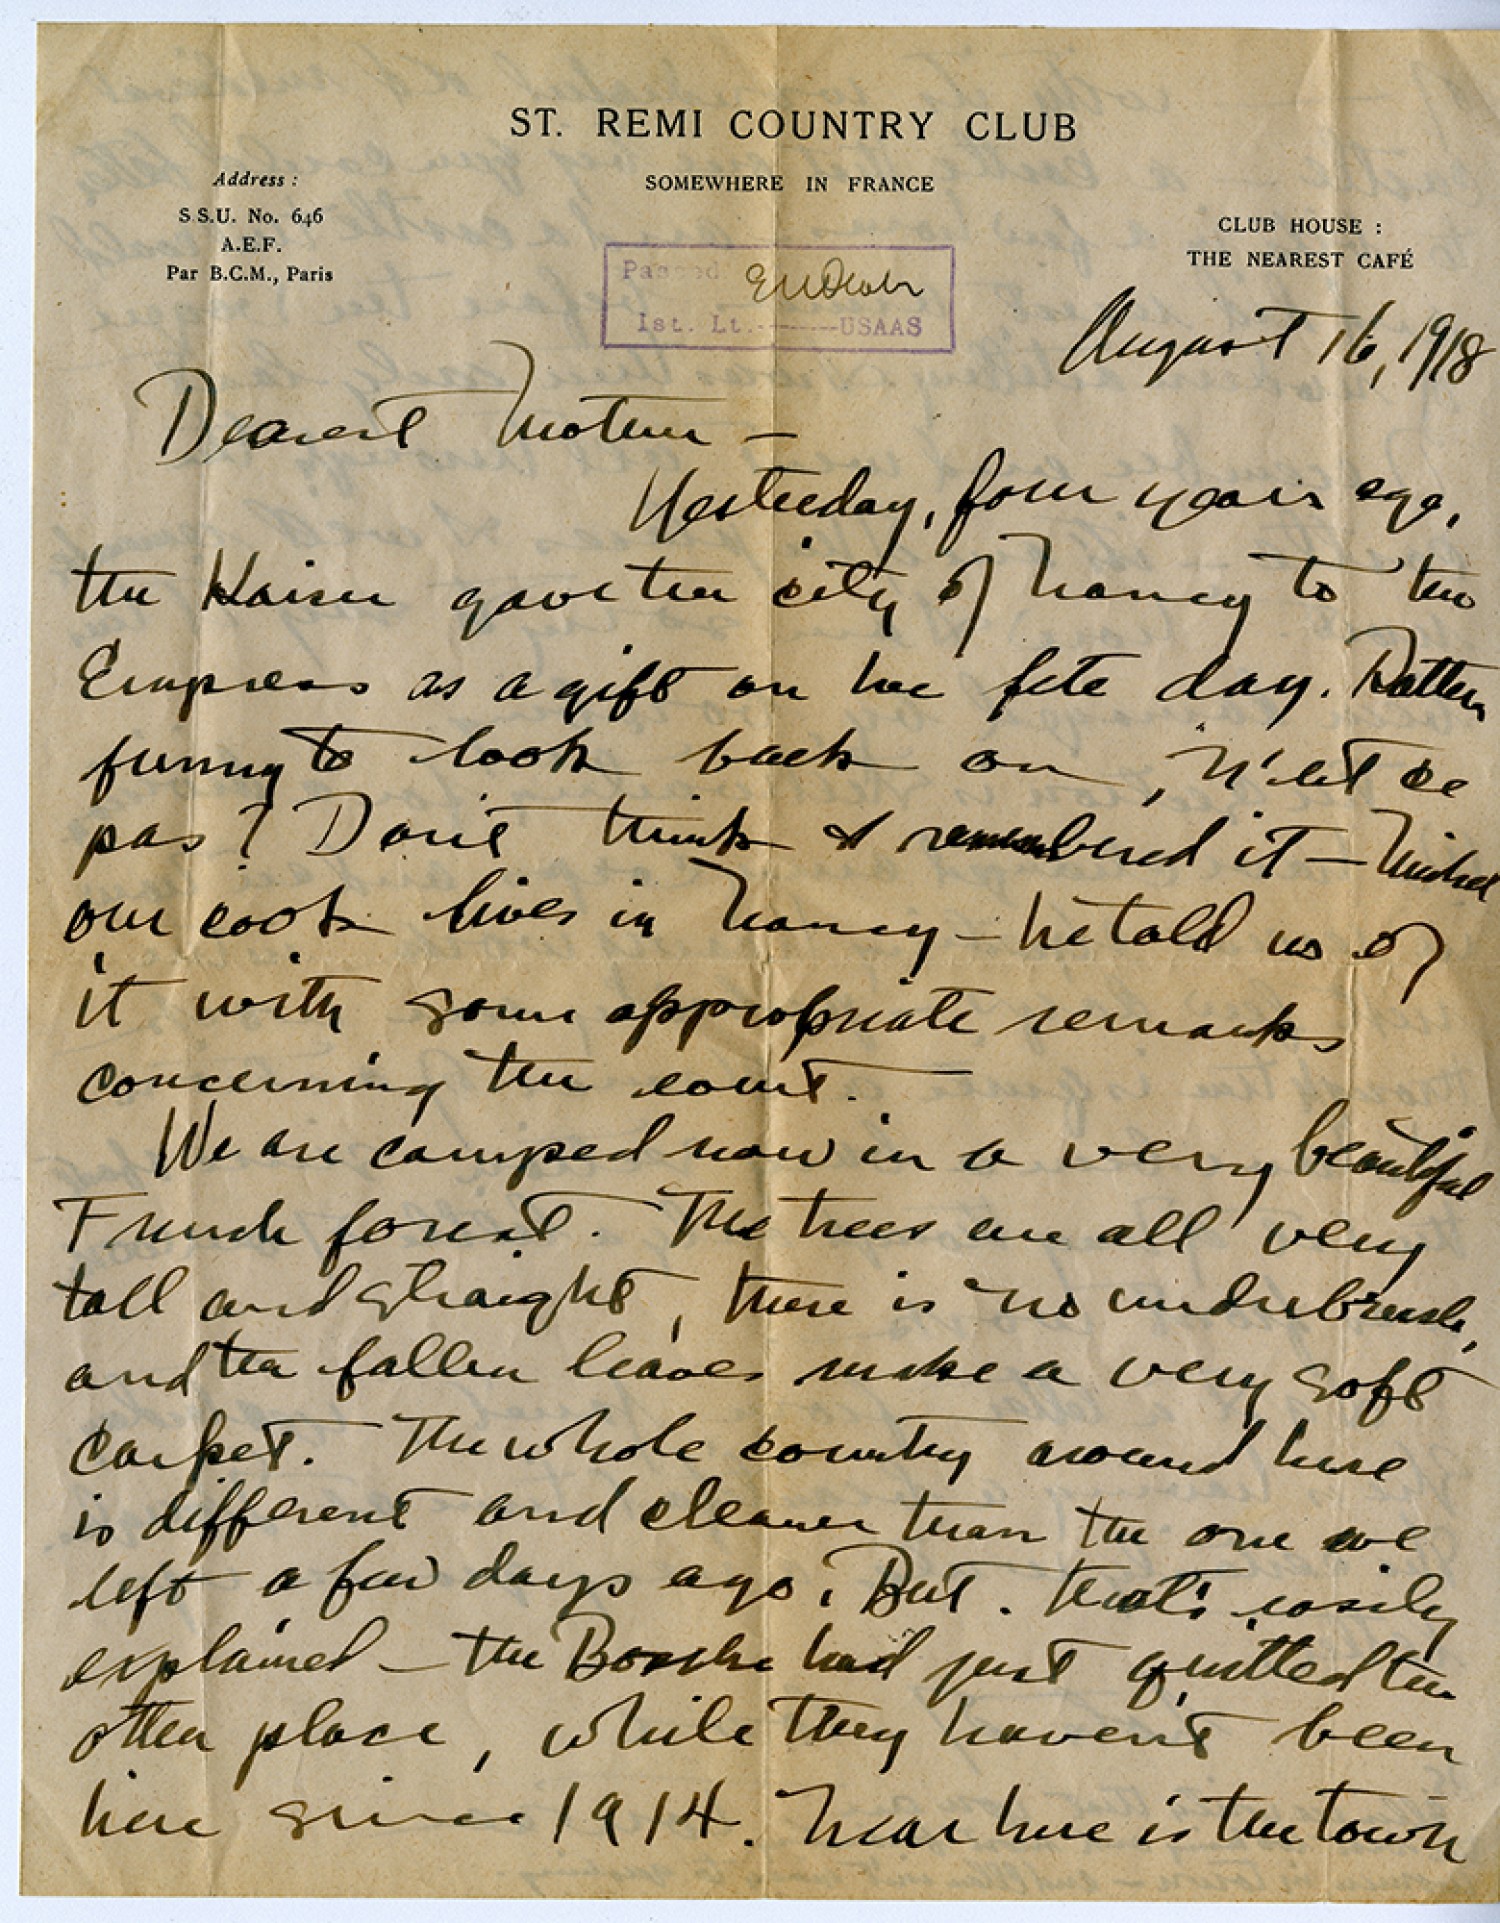 ST. REMI COUNTRY CLUB
SOMEWHERE IN FRANCE
Address :
S.S.U. No. 646
A.E.F.
Par B.C.M., Paris
CLUB HOUSE :
THE NEAREST CAFÉ
Passed
1st. Lt.--------USAAS
August 16, 1918
Dearest Mother —
Yesterday, four years ago,
the Kaiser gave the city of Nancy to the
Empress as a gift on her fete day. Rather
funny to look back on, n'est ce
pas? Don't think I remembered it — Michel
our cook lives in Nancy — he told us of
it with some appropriate remarks
concerning the count.
We are camped now in a very beautiful
French forest. The trees are all very
tall and straight, there is no underbrush,
and the fallen leaves make a very soft
carpet. The whole country around here
is different and cleaner than the one we
left a few days ago. But. that's easily
explained — the Boche had just quitted the
other place, while they haven't been
here since 1914. Near here is the town